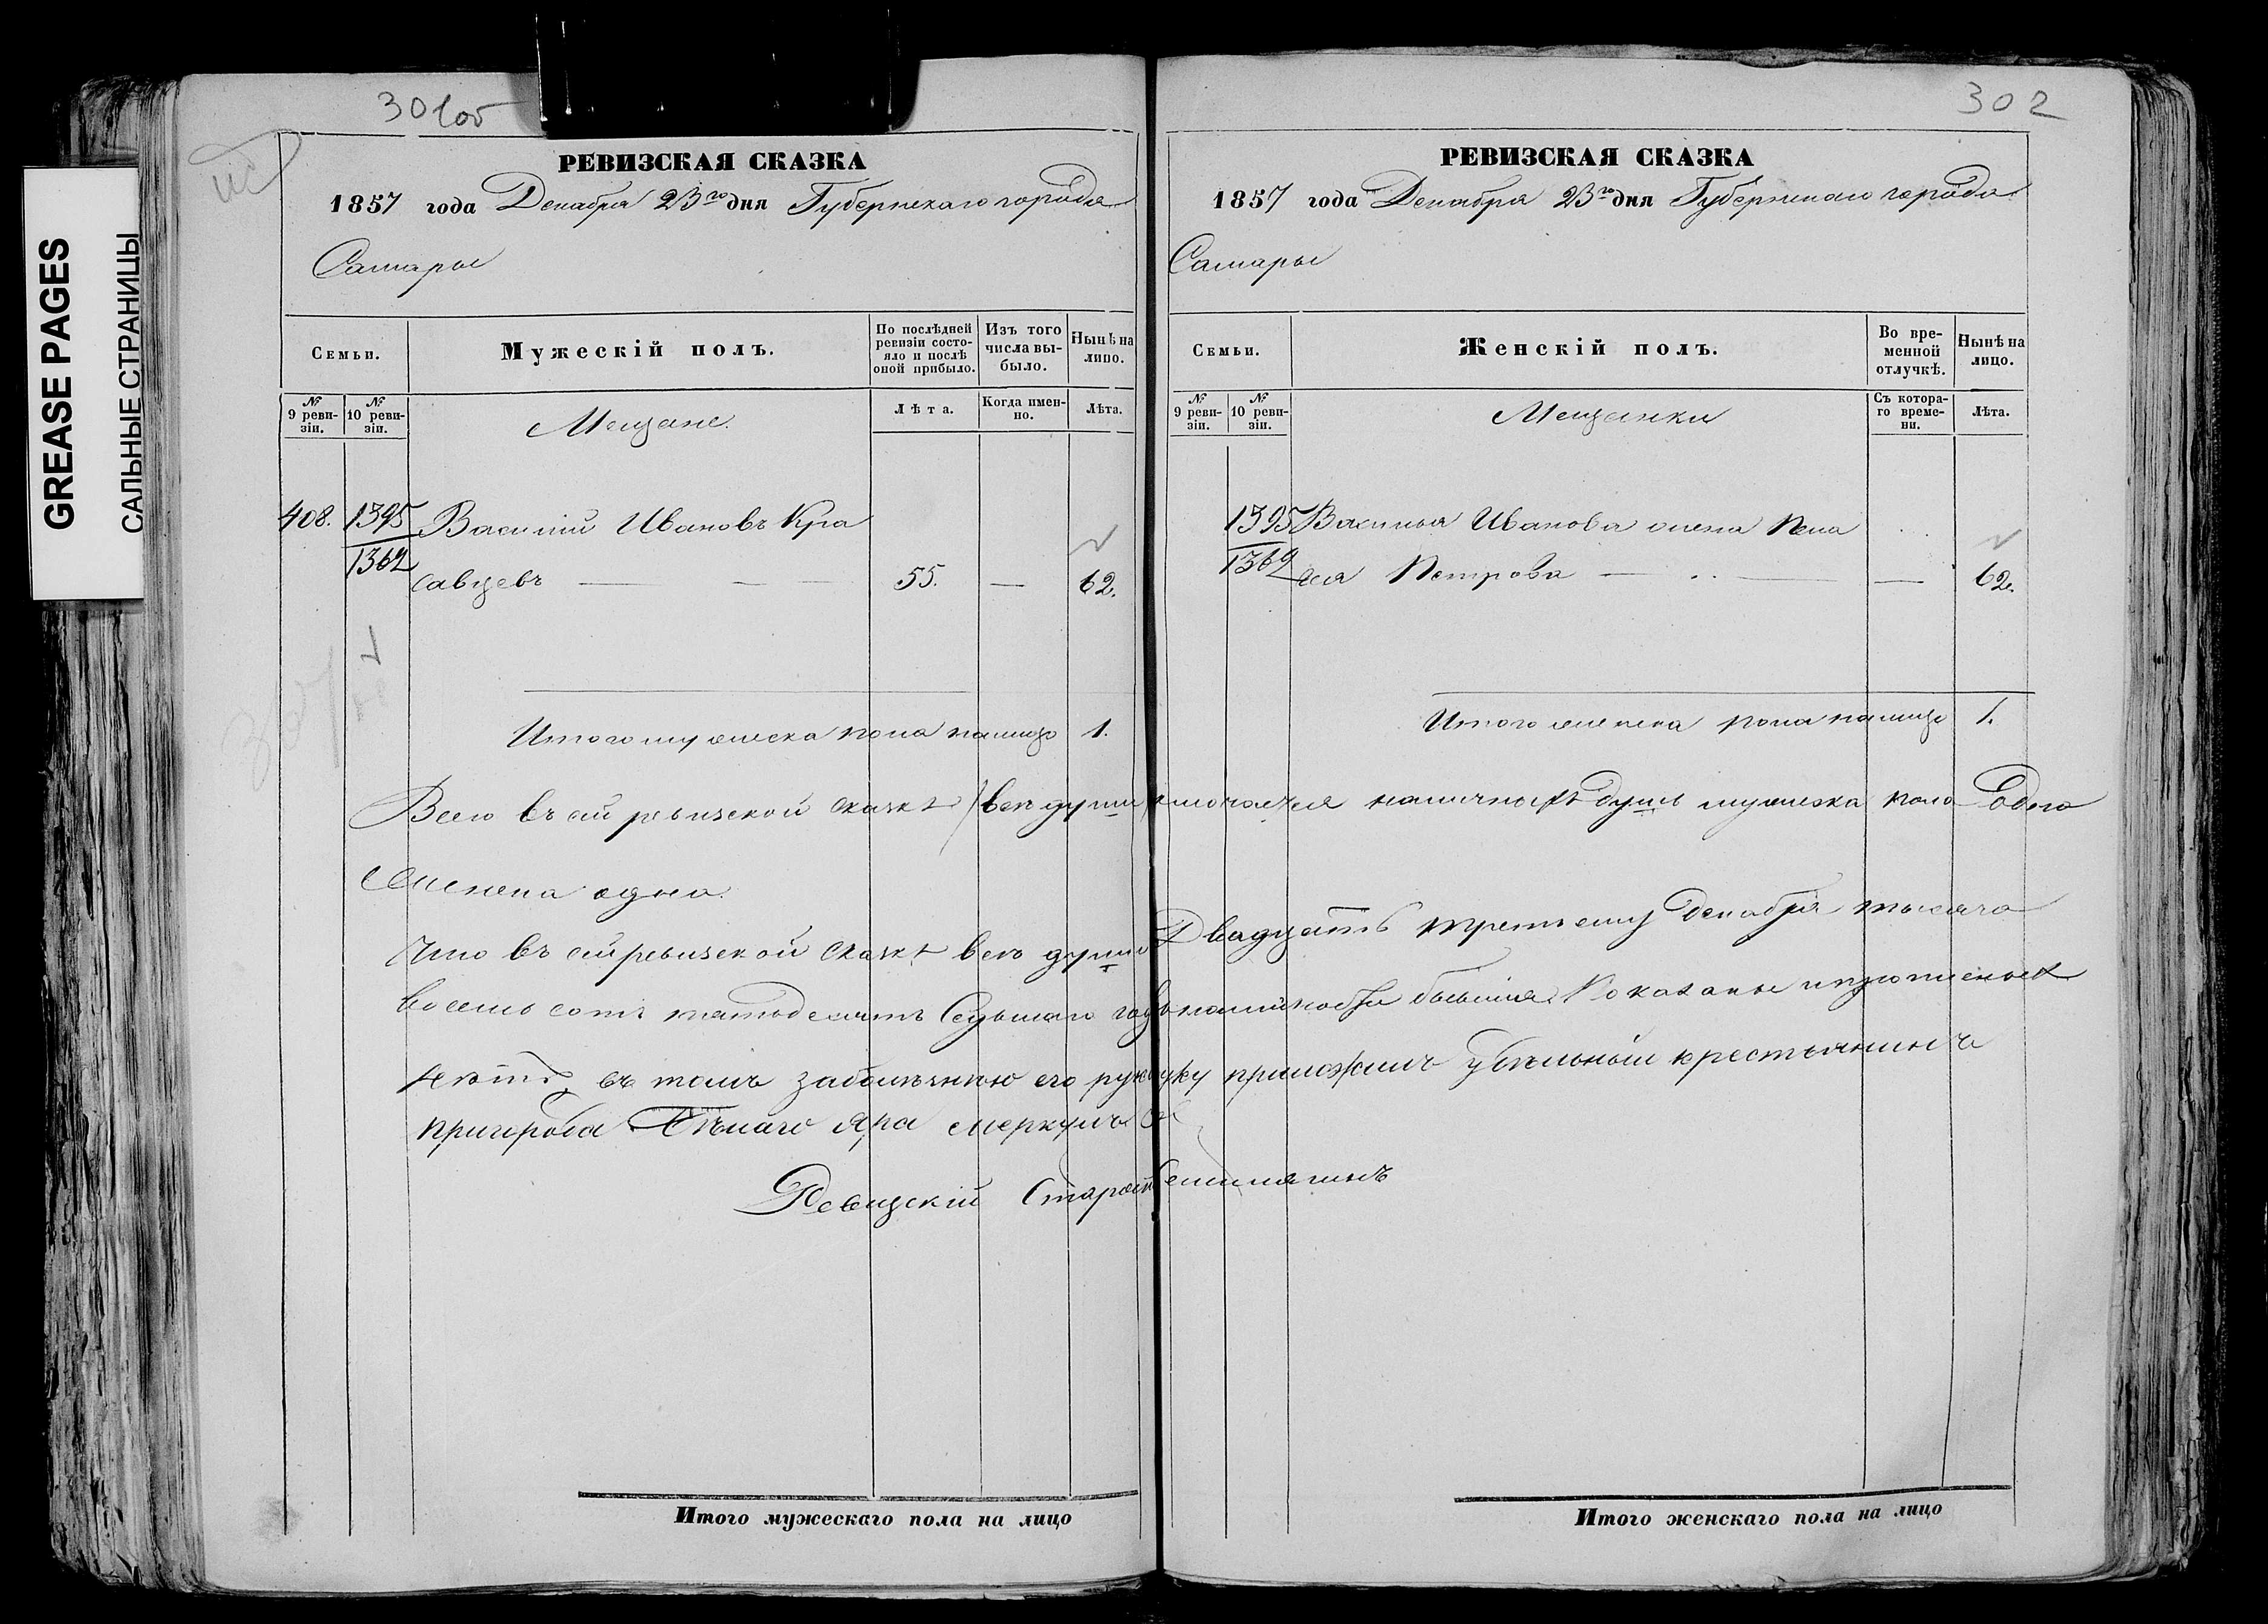 GREASE PAGES
САЛЬНЫЕ СТРАНИЦЫ
301об
РЕВИЗСКАЯ СКАЗКА
1857 года Декабря 23го дня Губернскаго города
Самары
Семьи.
Мужескій полъ.
По послѣдней ревизіи состояло и послѣ оной прибыло.
Изъ того числа выбыло.
Нынѣ на лицо.
№ 9 ревизіи.
№ 10 ревизіи.
Мещане.
Лѣта.
Когда именно.
Лѣта.
408. 1395 Василий Ивановъ Кра
1362 савцевъ — 55. — 62.
Итого мужеска пола налицо 1.
302
РЕВИЗСКАЯ СКАЗКА
1857 года Декабря 23го дня Губернскаго города
Самары
Семьи.
Женскій полъ.
Во временной отлучкѣ.
Нынѣ на лицо.
№ 9 ревизіи.
№ 10 ревизіи.
Мещанки
Съ котораго времени.
Лѣта.
1395 Василья Иванова жена Пела
1362 гея Петрова — — 62.
Итого женска пола налицо 1.
Всего въ сей ревизской сказкѣ наличныхъ душъ мужеска пола Одна
Женска одна.
Что въ сей ревизской сказкѣ всѣ души Двадцать третьему Декабря тысяча
восемь сотъ пятьдесятъ Седьмаго года налицо бывшия Показаны и прописныхъ
нѣтъ, въ томъ его руку приложилъ удѣльный крестьянинъ
пригорода Бѣлаго Яра
Ревизский Староста
Итого мужескаго пола на лицо
Итого женскаго пола на лицо